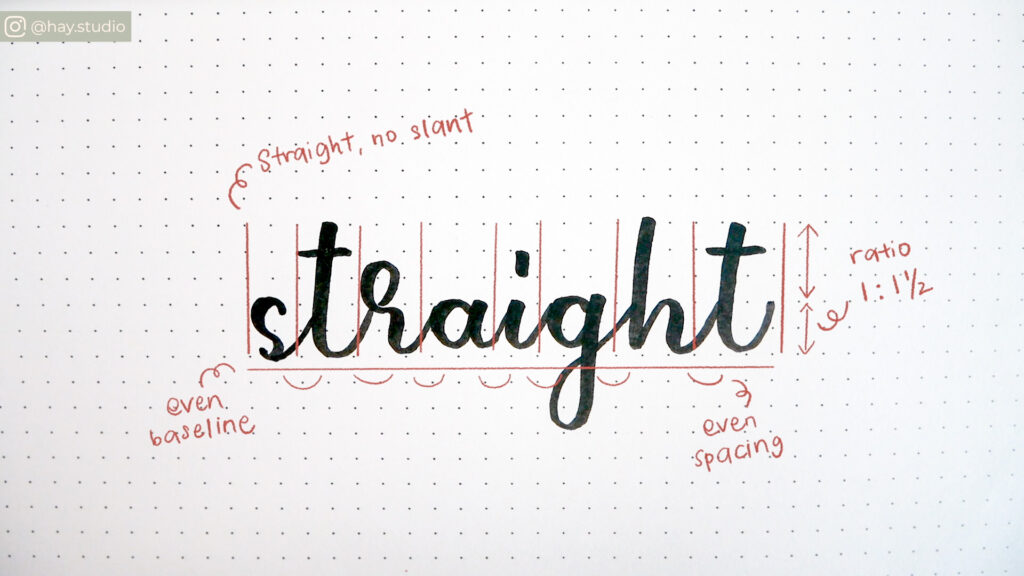 @hay.studio
Straight, no slant
straight
ratio
1:1½
even
baseline
even
spacing